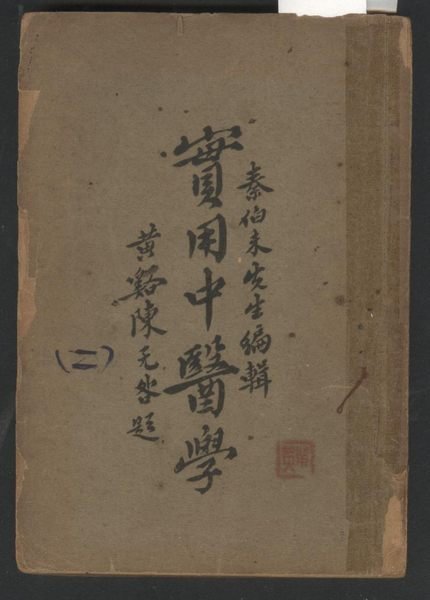 秦伯未先生編輯
實用中醫學
黃谿陳无咎題
(二)